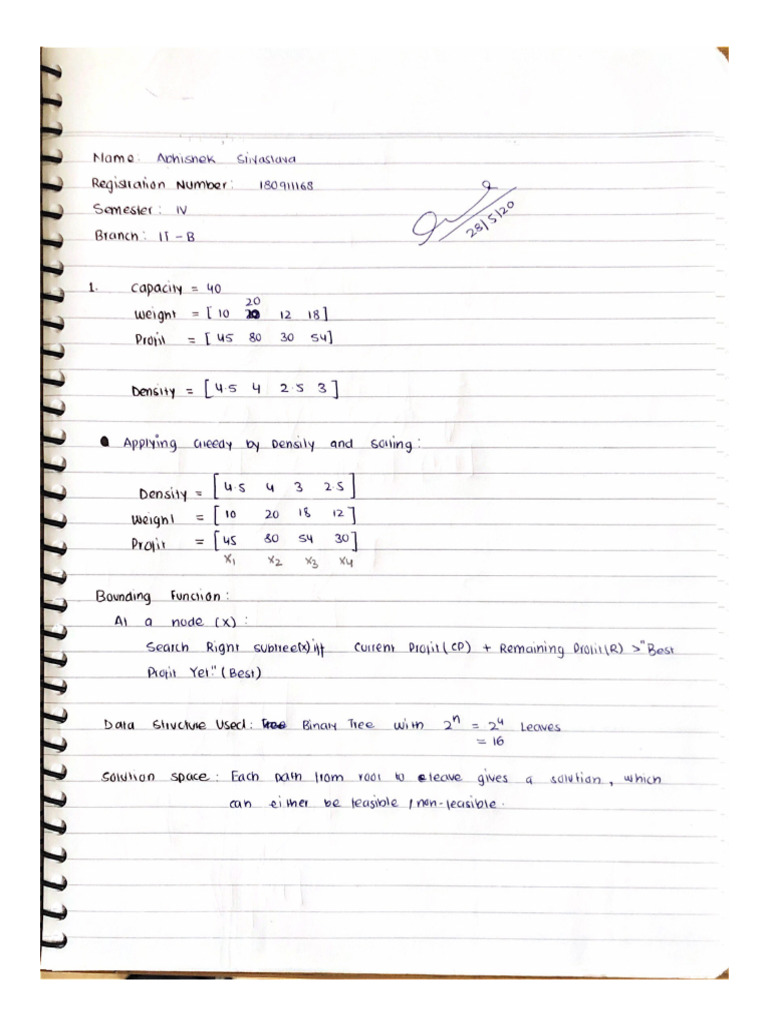 Name: Abhishek Sivastava
Registration Number: 180911168
Semester: IV
28/5/20
Branch: IT-B
1. Capacity = 40
20
Weight = [10 20 12 18]
Profit = [45 80 30 54]
Density = [4.5 4 2.5 3]
Applying Greedy by Density and scaling:
Density = [4.5 4 3 2.5]
Weight = [10 20 18 12]
Profit = [45 80 54 30]
x1 x2 x3 x4
Bounding Function:
At a node (x):
Search Right subtree(x) iff Current Profit(CP) + Remaining Profit(R) > "Best
Profit Yet." (Best)
Data Structure Used: Tree Binary Tree with 2^n = 2^4 leaves
= 16
Solution space: Each path from root to leave gives a solution, which
can either be feasible / non-feasible.